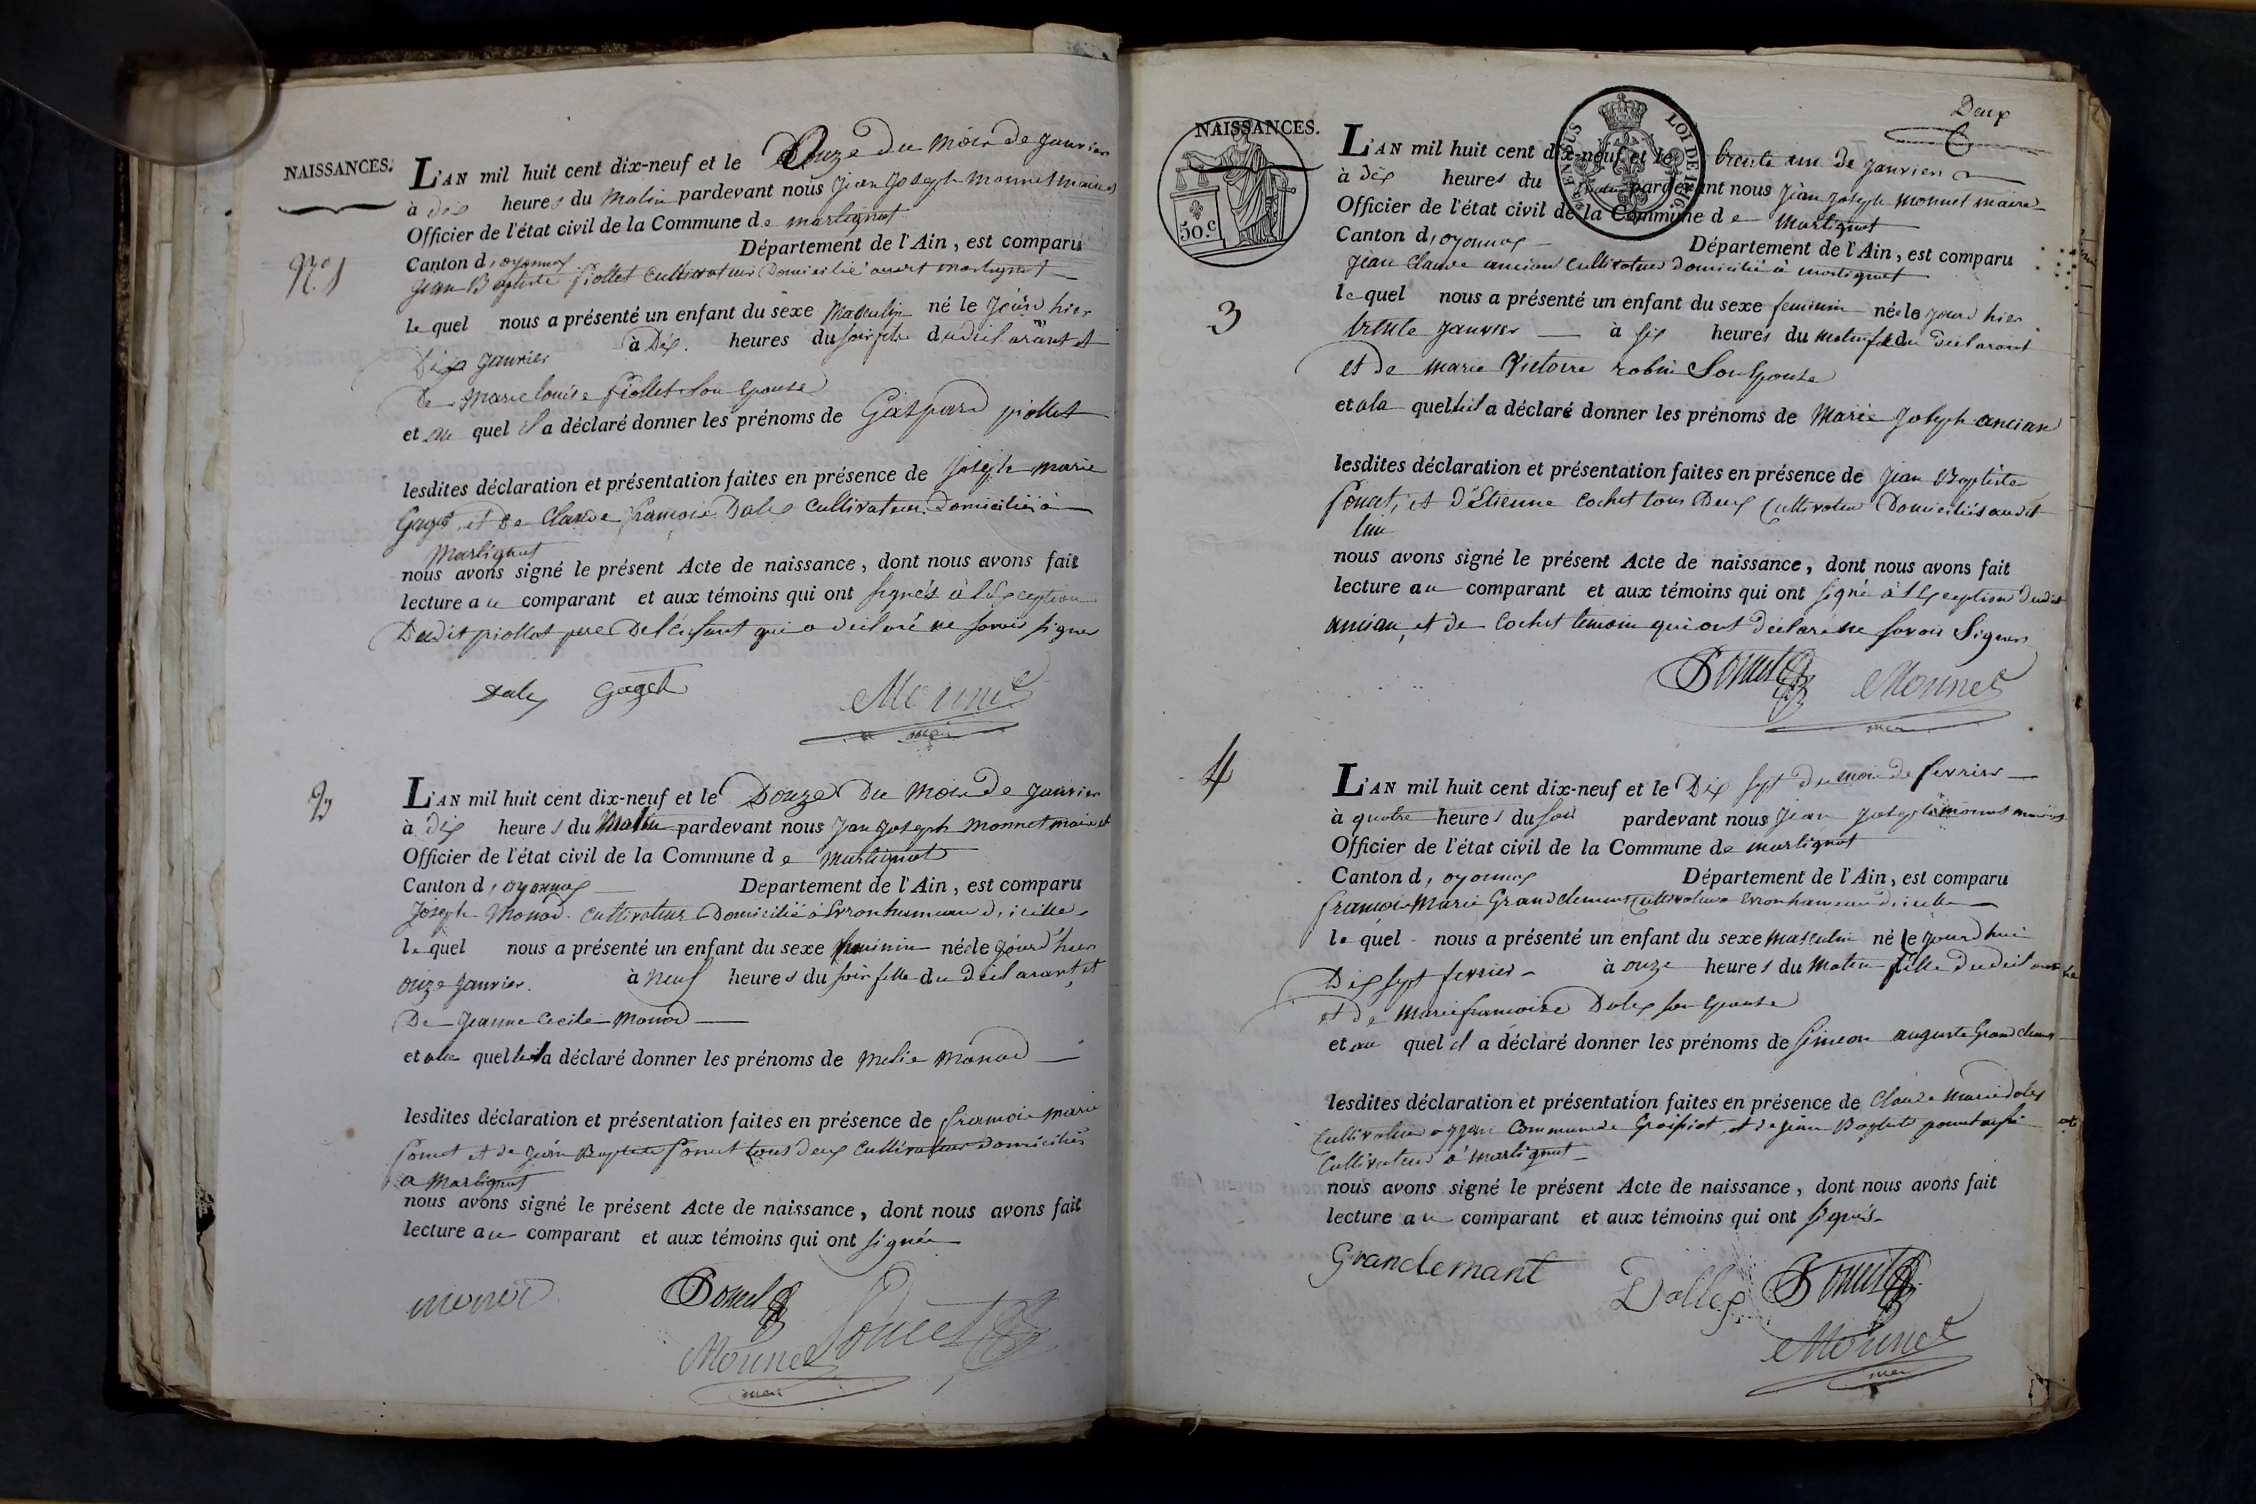 NAISSANCES.
L'AN mil huit cent dix-neuf et le Onze du mois de janvier
à dix heures du Matin pardevant nous jean joseph monnet maire
Officier de l'état civil de la Commune de martignat
Canton d'oyonnax Département de l'Ain, est comparu
jean Baptiste piollet cultivateur Domicilié martignat
N.º 1
le quel nous a présenté un enfant du sexe Masculin né le jour hier
Dix janvier à Dix heures du soir fils dudéclarant et
de Marie louise piollet son épouse
et au quel il a déclaré donner les prénoms de Gaspard piollet
lesdites déclaration et présentation faites en présence de joseph marie
Gaget et de Claude françois Dalex cultivateurs domiciliés à
Martignat
nous avons signé le présent Acte de naissance, dont nous avons fait
lecture au comparant et aux témoins qui ont signés à l'Exception
Dudit piollet pere Del'enfant qui a déclaré ne savoir signer
Dalex Gaget Monnet
maire
2
L'AN mil huit cent dix-neuf et le Douze Du Mois De janvier
à dix heures du Matin pardevant nous jean joseph Monnet maire et
Officier de l'état civil de la Commune de Martignat
Canton d'oyonnax Departement de l'Ain, est comparu
joseph Monod cultivateur Domicilié à Evron hameau d'icelle
le quel nous a présenté un enfant du sexe feminin née le jourd'hier
onze janvier. à Neuf heures du soir fille du déclarant, et
De jeanne Cecile Monod
et a la quelle il a déclaré donner les prénoms de Melie Monod
lesdites déclaration et présentation faites en présence de françois marie
Sonnet et de jean Baptiste Sonnet tous deux cultivateurs domiciliés
a Martignat
nous avons signé le présent Acte de naissance, dont nous avons fait
lecture au comparant et aux témoins qui ont signés
monod
Monnet
maire
Deux
NAISSANCES.
50.c
LOI DE 1816.
L'AN mil huit cent dix-neuf et le trente un de janvier
à dix heures du matin pardevant nous jean joseph monnet maire
Officier de l'état civil de la Commune de Martignat
Canton d'oyonnax Département de l'Ain, est comparu
jean Claude ancian cultivateur domicilié à martignat
3
le quel nous a présenté un enfant du sexe feminin née le jourd hier
trente janvier à six heures du matin fille du déclarant
et de marie Victoire robin Son épouse
et a la quelle il a déclaré donner les prénoms de Marie joseph ancian
lesdites déclaration et présentation faites en présence de jean Baptiste
Sonnet, et d'Etienne cochet tous Deux Cultivateurs Domiciliés audit
lieu
nous avons signé le présent Acte de naissance, dont nous avons fait
lecture au comparant et aux témoins qui ont signé à l'Exception dudit
ancian, et de Cochet temoin qui ont déclaré ne savoir Signer
Monnet
maire
4
L'AN mil huit cent dix-neuf et le Dix sept du mois de fevrier
à quatre heures du soir pardevant nous jean joseph monnet maire
Officier de l'état civil de la Commune de martignat
Canton d'oyonnax Département de l'Ain, est comparu
françois Marie Grandclement Cultivateur Evron hameau d'icelle
le quel nous a présenté un enfant du sexe masculin né le jourd hui
Dix sept fevrier à onze heures du Matin fille dudéclarant
et de Marie françoise Dalex son épouse
et au quel il a déclaré donner les prénoms de simeon auguste Grandclement
lesdites déclaration et présentation faites en présence de Claude Marie dalex
Cultivateur Commune de Groissiat et de jean Baptiste
Cultivateur à martignat
nous avons signé le présent Acte de naissance, dont nous avons fait
lecture au comparant et aux témoins qui ont signés
Granclemant Dallex
Monnet
maire